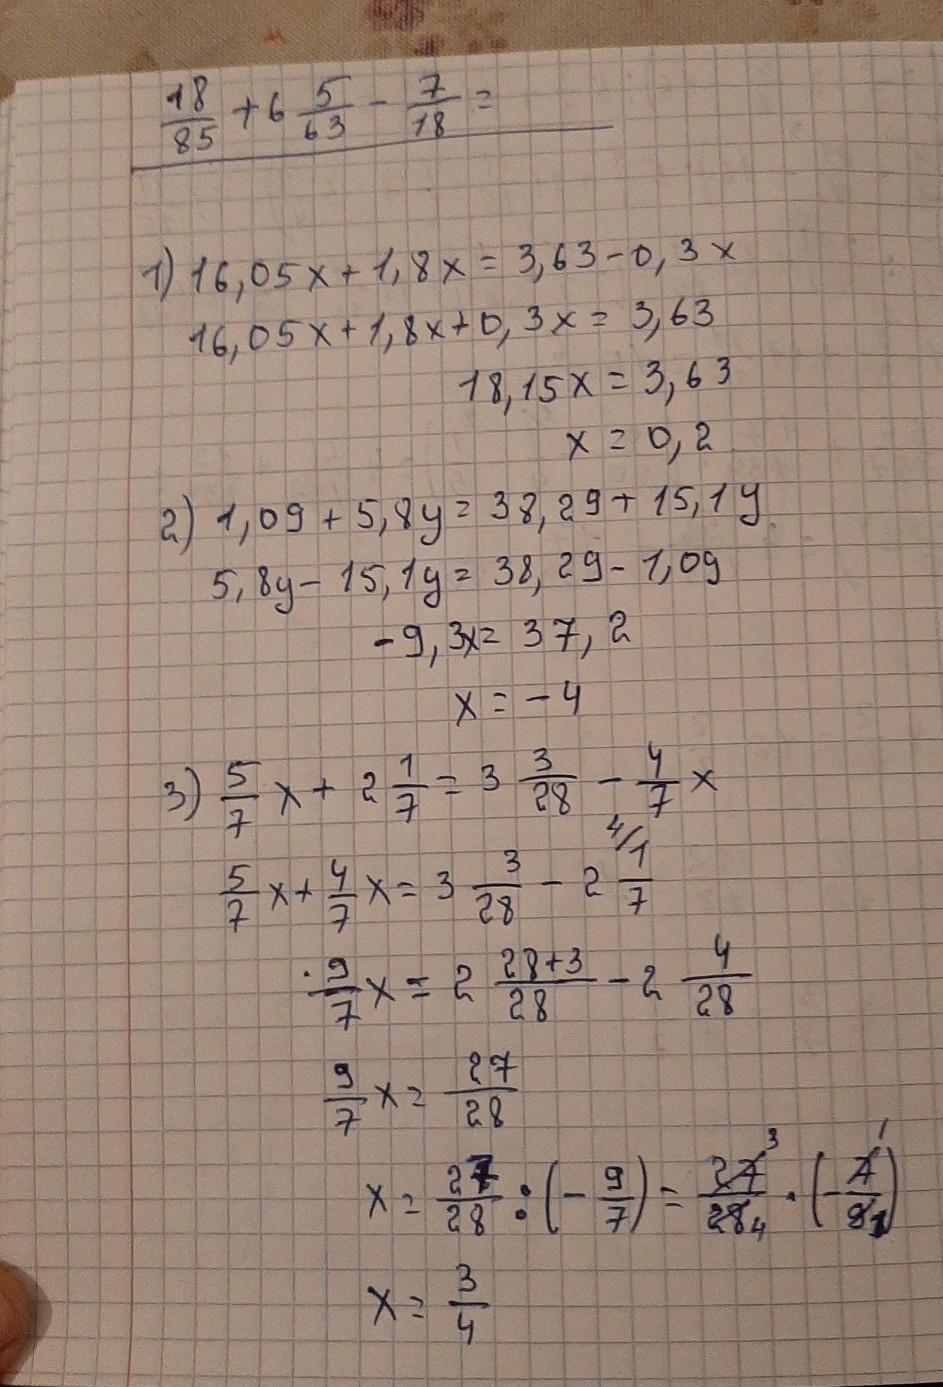 18/85 + 6 5/63 - 7/18 =
1) 16,05x + 1,8x = 3,63 - 0,3x
16,05x + 1,8x + 0,3x = 3,63
18,15x = 3,63
x = 0,2
2) 1,09 + 5,8y = 38,29 + 15,1y
5,8y - 15,1y = 38,29 - 1,09
-9,3x = 37,2
x = -4
3) 5/7 x + 2 1/7 = 3 3/28 - 4/7 x
5/7 x + 4/7 x = 3 3/28 - 2 4/ 1/7
9/7 x = 2 28+3/28 - 2 4/28
9/7 x = 27/28
x = 27/28 : (- 9/7) = 27 3/28 4 · (- 7 1/9 1)
x = 3/4